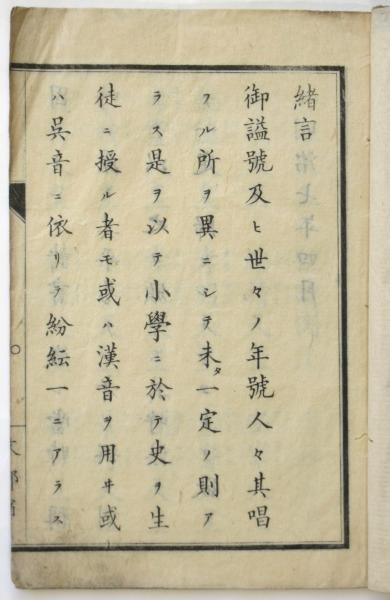 緒言
御謚號及ヒ世々ノ年號人々其唱
フル所ヲ異ニシテ未タ一定ノ則ア
ラス是ヲ以テ小學ニ於テ史ヲ生
徒ニ授ル者モ或ハ漢音ヲ用ヰ或
ハ吳音ニ依リテ紛紜一ニアラス